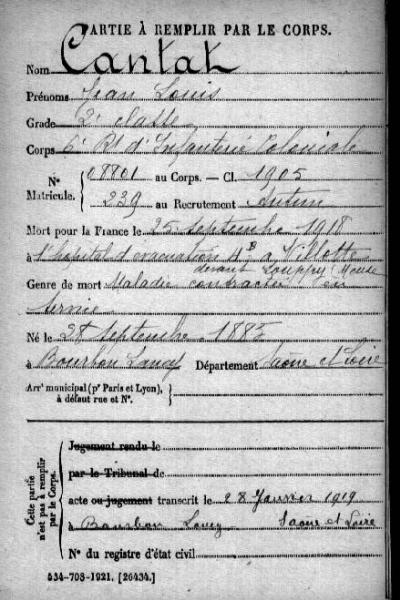 PARTIE À REMPLIR PAR LE CORPS.
Nom Cantat
Prénoms Jean Louis
Grade 2e classe
Corps 6e Rt d'Infanterie Coloniale
N° Matricule. { 08801 au Corps. — Cl. 1905
239 au Recrutement Autun
Mort pour la France le 25 septembre 1918
à l'hôpital d'évacuation 4B à Villotte
devant Louppy (Meuse
Genre de mort Maladie contractée en
service
Né le 28 septembre 1885
à Bourbon Lancy Département Saone et Loire
Arrt municipal (pr Paris et Lyon), à défaut rue et N°. }
Cette partie n'est pas à remplir par le Corps. {
Jugement rendu le
par le Tribunal de
acte ou jugement transcrit le 28 Janvier 1919
à Bourbon Lancy Saone et Loire
N° du registre d'état civil
534-708-1921. [26434.]